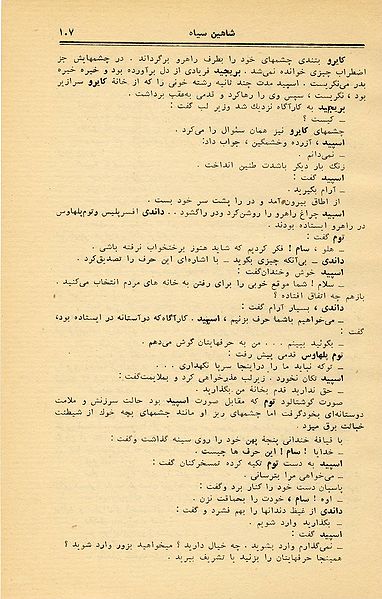 شاهین سیاه ۱۰۷
کایرو بتندی چشمهای خود را بطرف راهرو برگرداند . در چشمهایش جز
اضطراب چیزی خوانده نمی‌شد . بریجید فریادی از دل برآورده بود و خیره خیره
بدر می‌نگریست . اسپید مدت چند ثانیه رشته خونی را که از خانهٔ کایرو سرازیر
بود ، نگریست ، سپس وی را رهاکرد و قدمی به‌عقب برداشت .
بریجید به کارآگاه نزدیک شد وزیر لب گفت :
ـ کیست ؟
چشمهای کایرو نیز همان سئوال را می‌کرد .
اسپید ، آزرده وخشمگین ، جواب داد:
ـ نمی‌دانم .
زنگ بار دیگر باشدت طنین انداخت .
اسپید گفت :
ـ آرام بگیرید .
از اطاق بیرون‌آمد و در را پشت سر خود بست .
اسپید چراغ راهرو را روشن‌کرد ودر راگشود . . داندی افسرپلیس وتوم‌پلهاوس
در راهرو ایستاده بودند .
توم گفت :
ـ هلو ، سام ! فکر کردیم که شاید هنوز برختخواب نرفته باشی .
داندی ـ بی‌آنکه چیزی بگوید ـ با اشاره‌ای این حرف را تصدیق‌کرد .
اسپید خوش وخندان‌گفت :
ـ سلام ! شما موقع خوبی را برای رفتن به خانه های مردم انتخاب می‌کنید .
بازهم چه اتفاق افتاده ؟
داندی ، بسیار آرام گفت :
ـ می‌خواهیم باشما حرف بزنیم ، اسپید . کارآگاه‌که دوآستانه در ایستاده بود،
گفت :
ـ بگوئید ببینم . . . من به حرفهایتان گرش می‌دهم .
توم پلهاوس قدمی پیش رفت :
ـ توکه نباید ما را دراینجا سرپا نگهداری . . .
اسپید تکان نخورد . زیرلب عذرخواهی کرد و بملایمت‌گفت :
ـ حق ندارید قدم بخانهٔ من بگذارید .
صورت گوشتالود توم که مقابل صورت اسپید بود حالت سرزنش و ملامت
دوستانه‌ای بخودگرفت اما چشمهای ریز او مانند چشمهای بچه خوك از شیطنت
خیالت برق میزد .
با قیافهٔ خندانی پنجهٔ پهن خود را روی سینه گذاشت وگفت :
ـ خدایا ! سام ! این حرف ها چیست .
اسپید به دست توم تکیه کرده تمسخرکنان گفت :
ـ می‌خواهی مرا بترسانی .
پاسبان دست خود را کنار برد وگفت :
ـ اوه ! سام ، خودت را بحماقت نزن .
داندی از غیظ دندانها را بهم فشرد و گفت :
ـ بگذارید وارد شویم .
اسپید گفت :
ـ نمی‌گذارم وارد بشوید . چه خیال دارید ؟ میخواهید بزور وارد شوید ؟
همینجا حرفهایتان را بزنید یا تشریف ببرید .